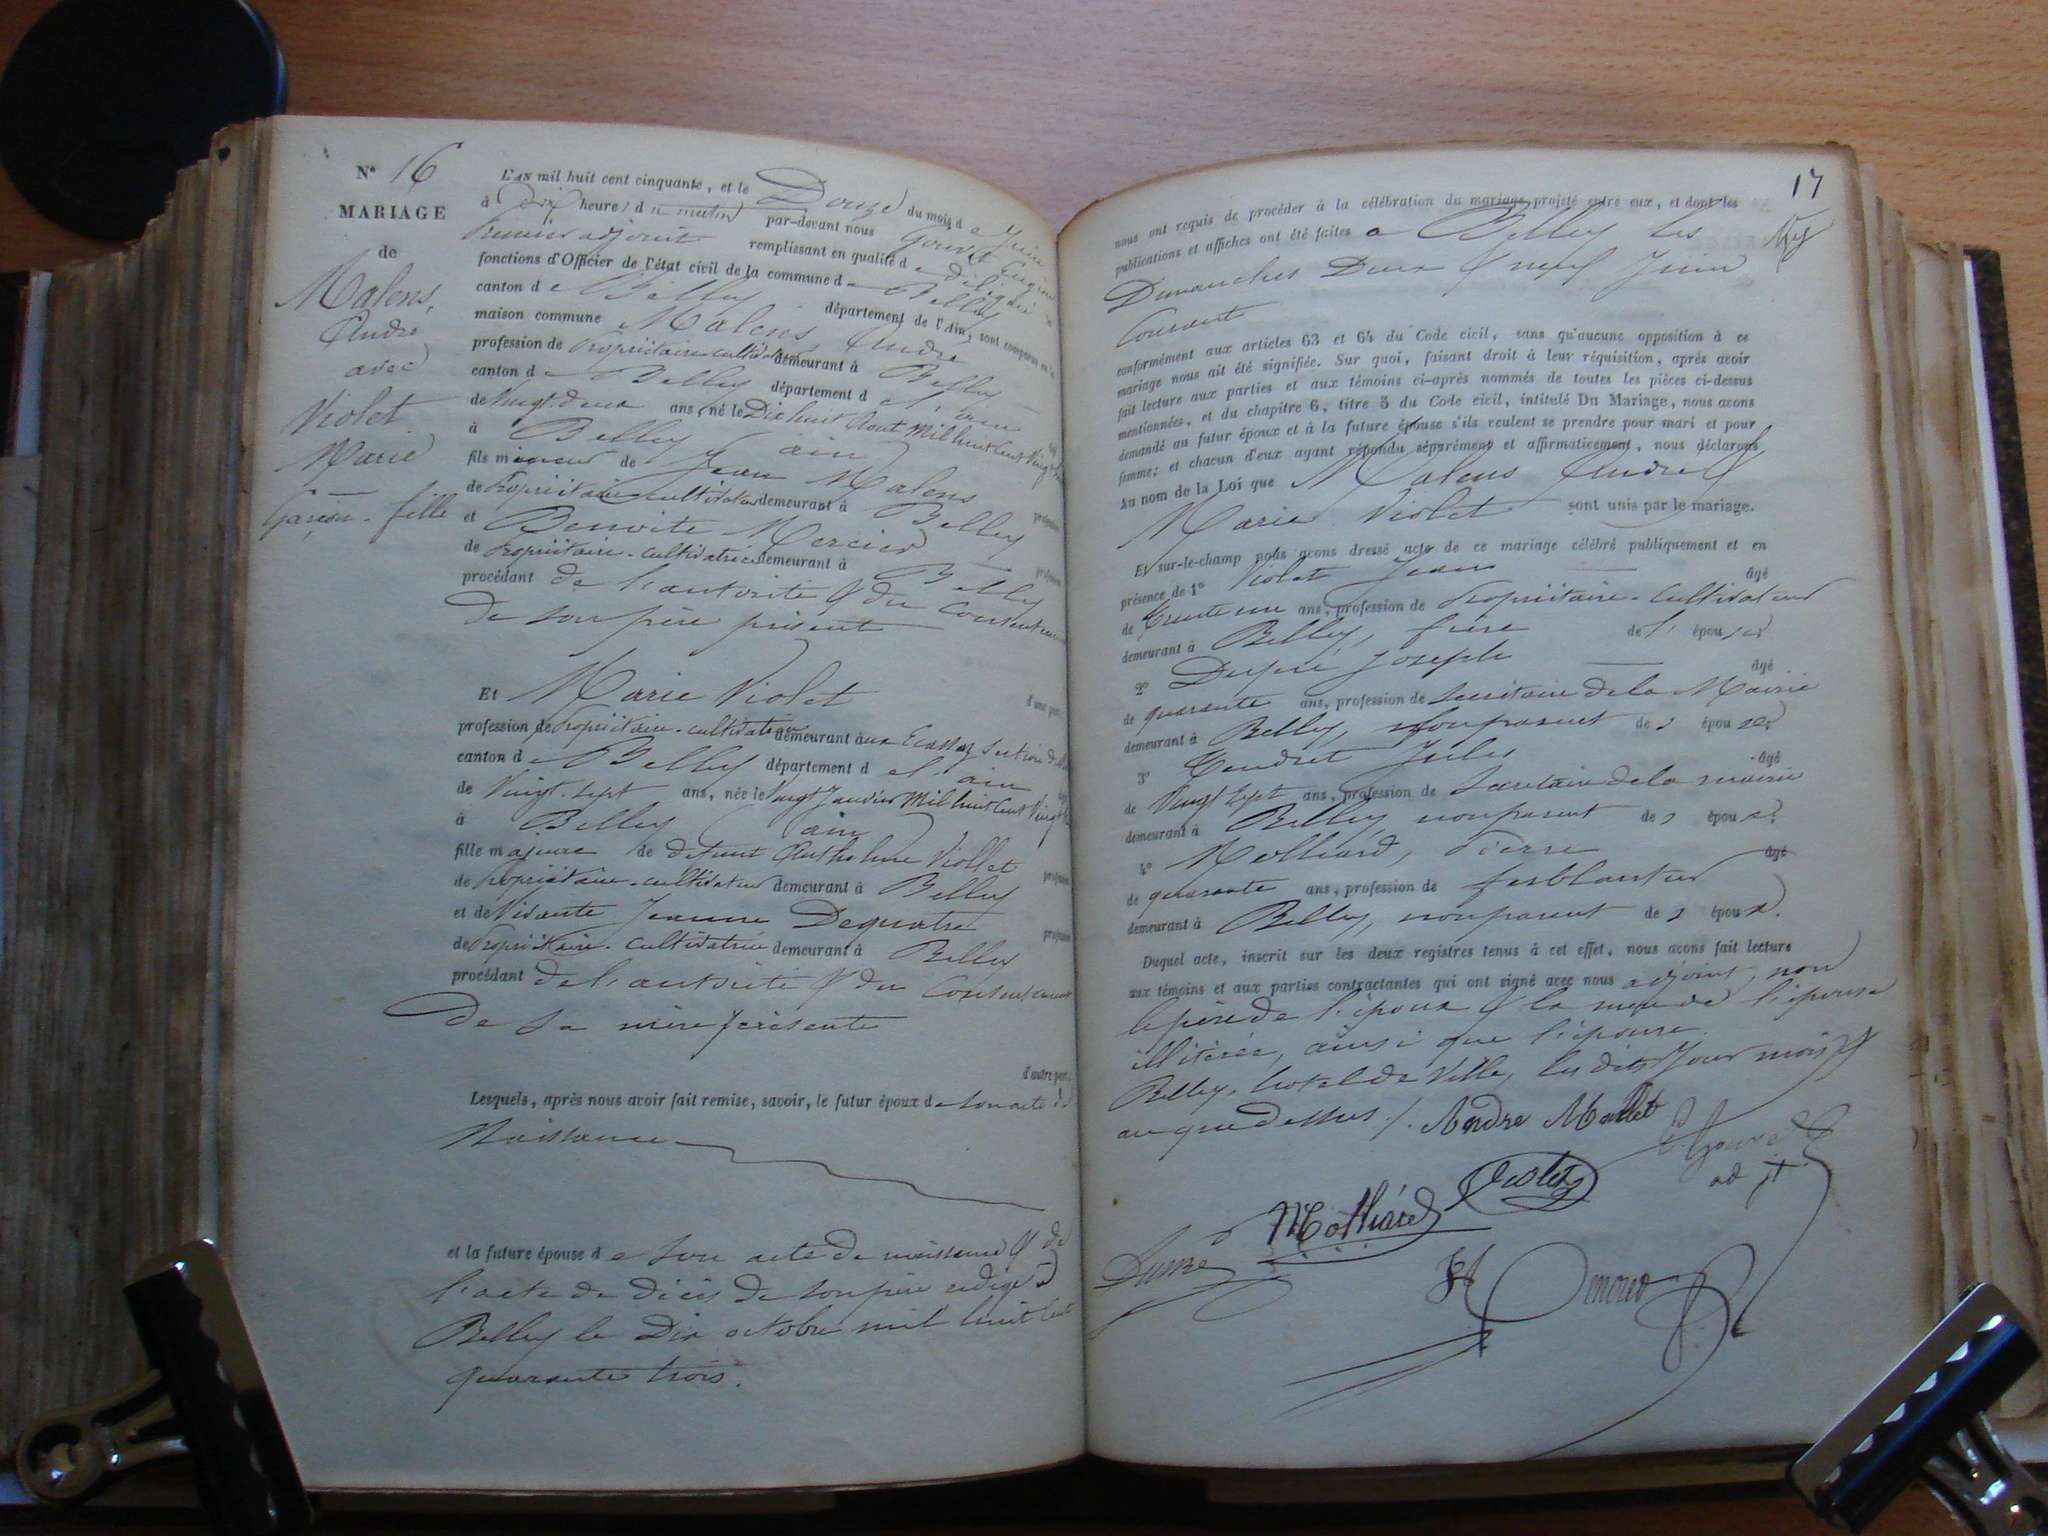 N° 16
MARIAGE
de
Malens,
André
avec
Violet
Marie
Garçon - fille
L'AN mil huit cent cinquante, et le Douze du mois de Juin
à Dix heures du matin par-devant nous
premier adjoint remplissant en qualité de délégué
fonctions d'Officier de l'état civil de la commune de Belley
canton de Belley département de l'Ain, sont comparus en la
maison commune Malens André
profession de propriétaire cultivateur demeurant à Belley
canton de Belley département de l'Ain
de Vingt-deux ans, né le Dix huit Aout Mil huit Cent Vingt
à Belley ain
fils mineur de Jean Malens
de propriétaire cultivateur demeurant à Belley
et Benoite Mercier
de propriétaire-cultivatrice demeurant à Belley
procédant de l'autorité & du Consentement
de son père présent
d'une part,
Et Marie Violet
profession de propriétaire-cultivateur demeurant aux Ecassaz section de
canton de Belley département de l'ain
de Vingt-sept ans, née le Vingt Janvier Mil huit Cent Vingt
à Belley ain
fille majeure de défunt Anthelme Viollet
de propriétaire-cultivateur demeurant à Belley
et de Vivante Jeanne Dequatre
de Propriétaire-cultivatrice demeurant à Belley
procédant de l'autorité & du Consentement
de sa mère présente
d'autre part.
Lesquels, après nous avoir fait remise, savoir, le futur époux de son acte de
Naissance
et la future épouse de son acte de naissance & de
l'acte de décès de son père rédigé à
Belley le Dix octobre mil huit Cent
quarante trois.
17
nous ont requis de procéder à la célébration du mariage projeté entre eux, et dont les
publications et affiches ont été faites à Belley les
Dimanches Deux & neuf Juin
Courant
conformément aux articles 63 et 64 du Code civil, sans qu'aucune opposition à ce
mariage nous ait été signifiée. Sur quoi, faisant droit à leur réquisition, après avoir
fait lecture aux parties et aux témoins ci-après nommés de toutes les pièces ci-dessus
mentionnées, et du chapitre 6, titre 5 du Code civil, intitulé Du Mariage, nous avons
demandé au futur époux et à la future épouse s'ils veulent se prendre pour mari et pour
femme; et chacun d'eux ayant répondu séparément et affirmativement, nous déclarons
Au nom de la Loi que Malens André &
Marie Violet sont unis par le mariage.
Et sur-le-champ nous avons dressé acte de ce mariage célébré publiquement et en
présence de 1° Violet Jean âgé
de Trente un ans, profession de Propriétaire-Cultivateur
demeurant à Belley, frère de l'épouse
2° Dupré Joseph âgé
de quarante ans, profession de secrétaire de la Mairie
demeurant à Belley, non parent des époux
3° Tendret Jules âgé
de Vingt Sept ans, profession de Secrétaire de la mairie
demeurant à Belley, non parent des époux
4° Molliard, Pierre âgé
de quarante ans, profession de ferblantier
demeurant à Belley, non parent des époux.
Duquel acte, inscrit sur les deux registres tenus à cet effet, nous avons fait lecture
aux témoins et aux parties contractantes qui ont signé avec nous adjoint, non
le père de l'époux & la mère de l'épouse
illitérés, ainsi que l'épouse.
Belley, hotel de Ville, les dits Jour mois &
an que dessus ./. Andre Mallet
ad jt
Violet
Molliard
Dupré